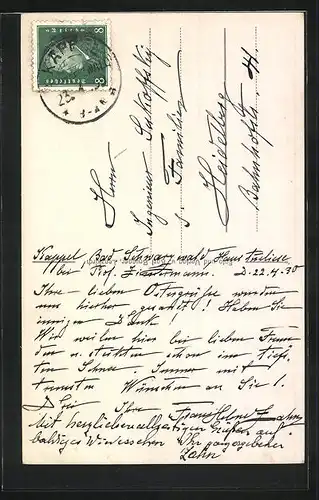 KAPPEL
Deutsches Reich
8 8
Herrn
Ingenieur Suskoffsky
s. Familien
Heidelberg
Bahnhofstr. 41.
Kappel Bad. Schwarzwald, Haus
bei Prof. Zimmermann. D. 22.4.30
Ihre lieben Ostergrüße wurden
uns hierher gesandt!! Haben Sie
innigen Dank!
Wir weilen hier bei lieben Freun
den u. stecken schon im tief-
sten Schnee. Immer mit
treusten Wünschen an Sie!
Ihre
Mit herzlichen allseitigen Grüßen auf
baldiges Wiedersehen Ihr ganz ergebener
Zahn